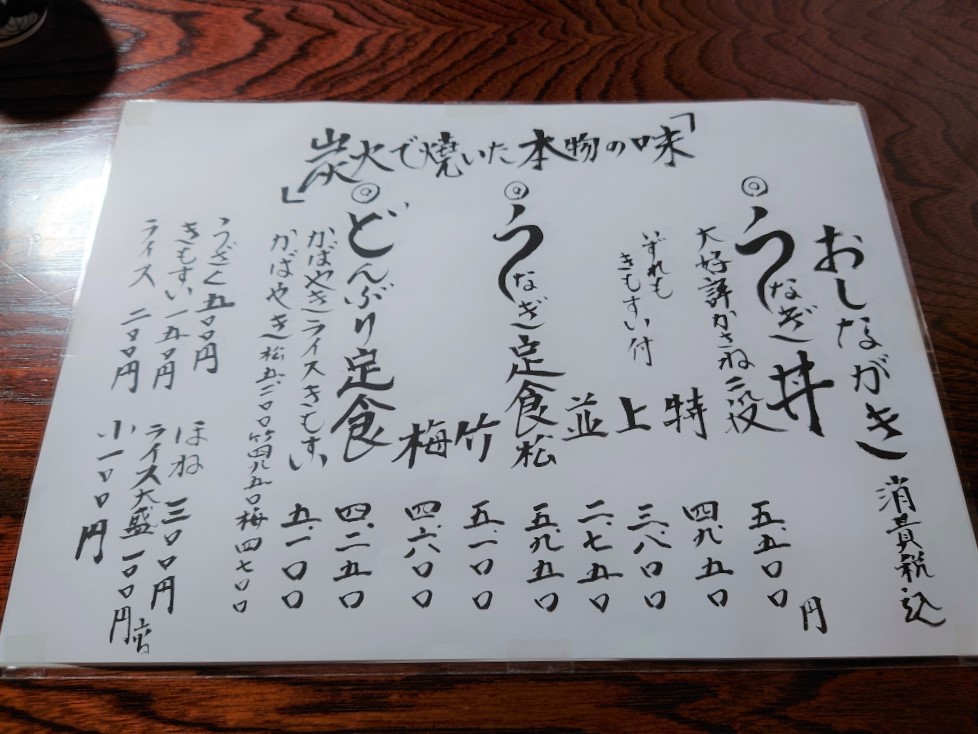 「炭火で焼いた本物の味」
おしながき 消費税込
◎うなぎ丼
大好評かさね二段 五、五〇〇円
特 四、九五〇
上 三、八〇〇
並 二、七五〇
いずれも
きもすい付
◎うなぎ定食 松 五、九五〇
竹 五、一〇〇
梅 四、六〇〇
◎どんぶり定食 四、二五〇
かばやきライスきもすい 五、一〇〇
かばやき 松五、二〇〇 竹四、九五〇 梅四七〇〇
うざく 五〇〇円
きもすい 一五〇円
ライス 二〇〇円
ほね 三〇〇円
ライス大盛 一〇〇円
小 一〇〇円